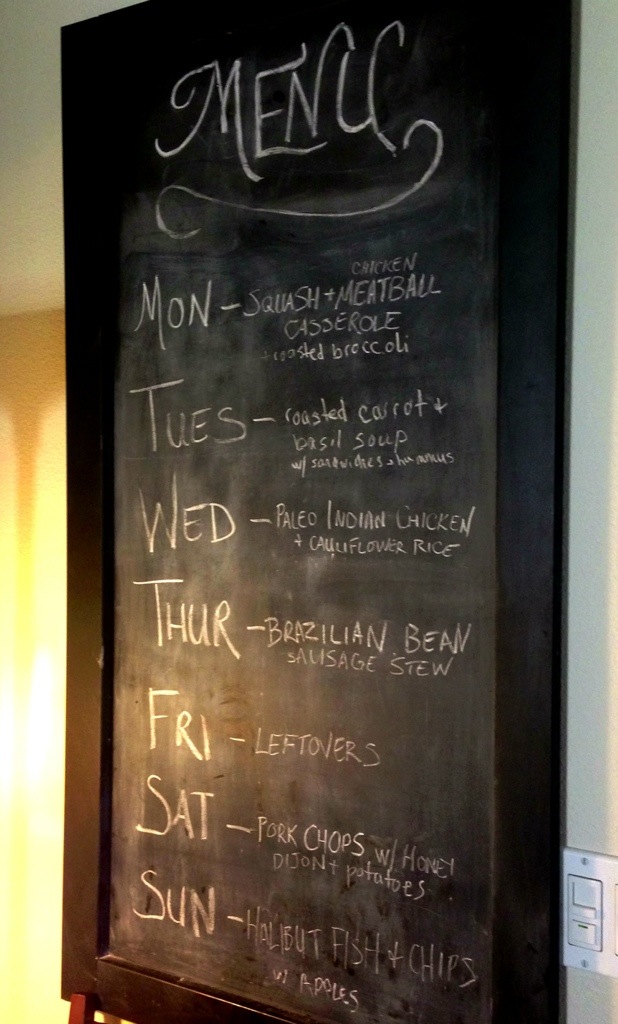 MENU
CHICKEN
MON - SQUASH + MEATBALL
CASSEROLE
+ roasted broccoli
TUES - roasted carrot +
basil soup
w/ sandwiches + hummus
WED - PALEO INDIAN CHICKEN
+ CAULIFLOWER RICE
THUR - BRAZILIAN BEAN
SAUSAGE STEW
FRI - LEFTOVERS
SAT - PORK CHOPS w/ HONEY
DIJON + potatoes
SUN - HALIBUT FISH + CHIPS
w/ APPLES